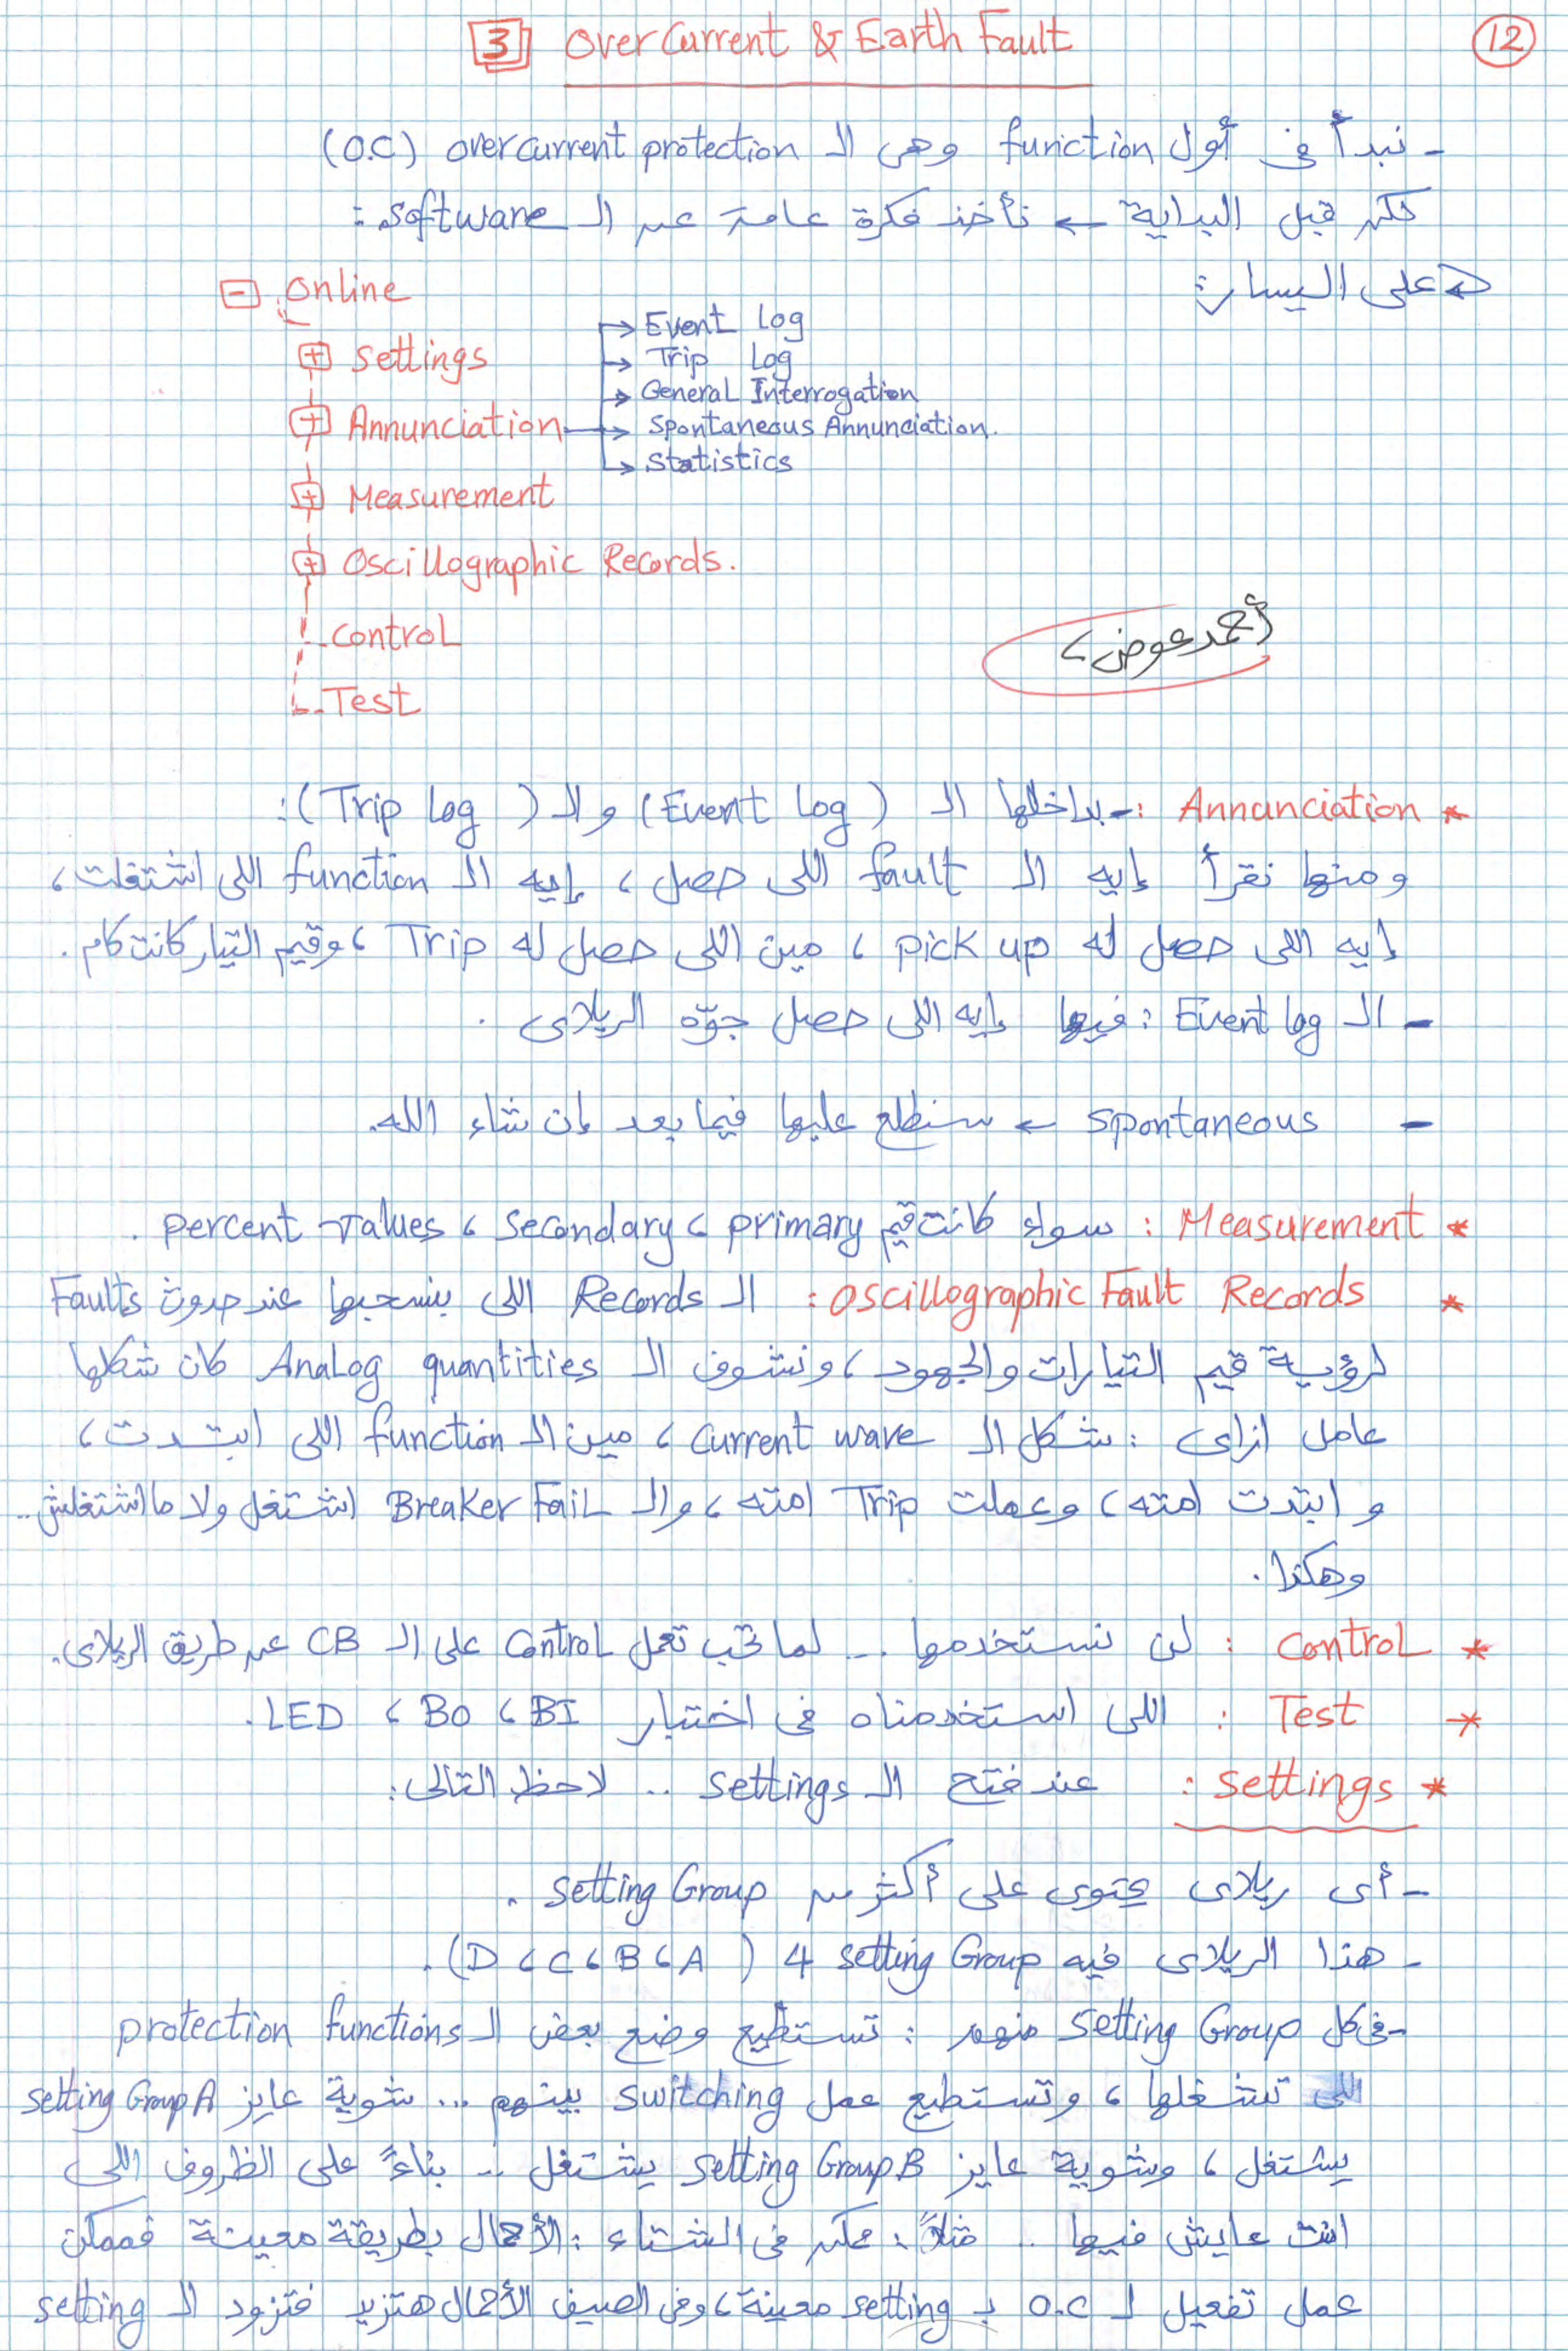 3 Over Current & Earth Fault
12
- نبدأ فى أول function وهى الـ overcurrent protection (O.C)
لكن قبل البداية ← نأخذ فكرة عامة عن الـ software :
على اليسار :
Online
Settings
Annunciation
Event Log
Trip Log
General Interrogation
Spontaneous Annunciation.
Statistics
Measurement
Oscillographic Records.
Control
Test
أحمد عوض
* Annunciation :- بداخلها الـ (Event Log) و الـ (Trip Log) :
ومنها نقرأ إيه الـ fault اللى حصل ، إيه الـ function اللى اشتغلت ،
إيه اللى حصل له pick up ، مين اللى حصل له Trip ، وقيم التيار كانت كام .
- الـ Event log : فيها إيه اللى حصل جوّه الريلاى .
- spontaneous ← سنطلع عليها فيما بعد إن شاء الله.
* Measurement : سواء كانت قيم primary ، secondary ، percent values .
* Oscillographic Fault Records : الـ Records اللى بنسحبها عند حدوث Faults
لرؤية قيم التيارات والجهود ، ونشوف الـ Analog quantities كان شكلها
عامل ازاى : شكل الـ current wave ، مين الـ function اللى ابتدت ،
و ابتدت امته ، وعملت Trip امته ، والـ Breaker Fail اشتغل ولا ما اشتغلش ..
وهكذا .
* Control : لن نستخدمها ... لما تحب تعمل Control على الـ CB عن طريق الريلاى .
* Test : اللى استخدمناه فى اختبار BI ، BO ، LED .
* Settings : عند فتح الـ settings .. لاحظ التالى :
- أى ريلاى يحتوى على أكثر من setting Group .
- هذا الريلاى فيه 4 setting Group ( A ، B ، C ، D ) .
- فى كل setting Group منهم : تستطيع وضع بعض الـ protection functions
اللى تشغلها ، وتستطيع عمل switching بينهم ... شوية عايز setting Group A
يشتغل ، وشوية عايز setting Group B يشتغل .. بناءً على الظروف اللى
انت عايش فيها .. مثلاً : ممكن فى الشتاء : الأحمال بطريقة معينة فممكن
عمل تفعيل لـ O.C بـ setting معينة ، وفى الصيف الأحمال هتزيد فتزود الـ setting